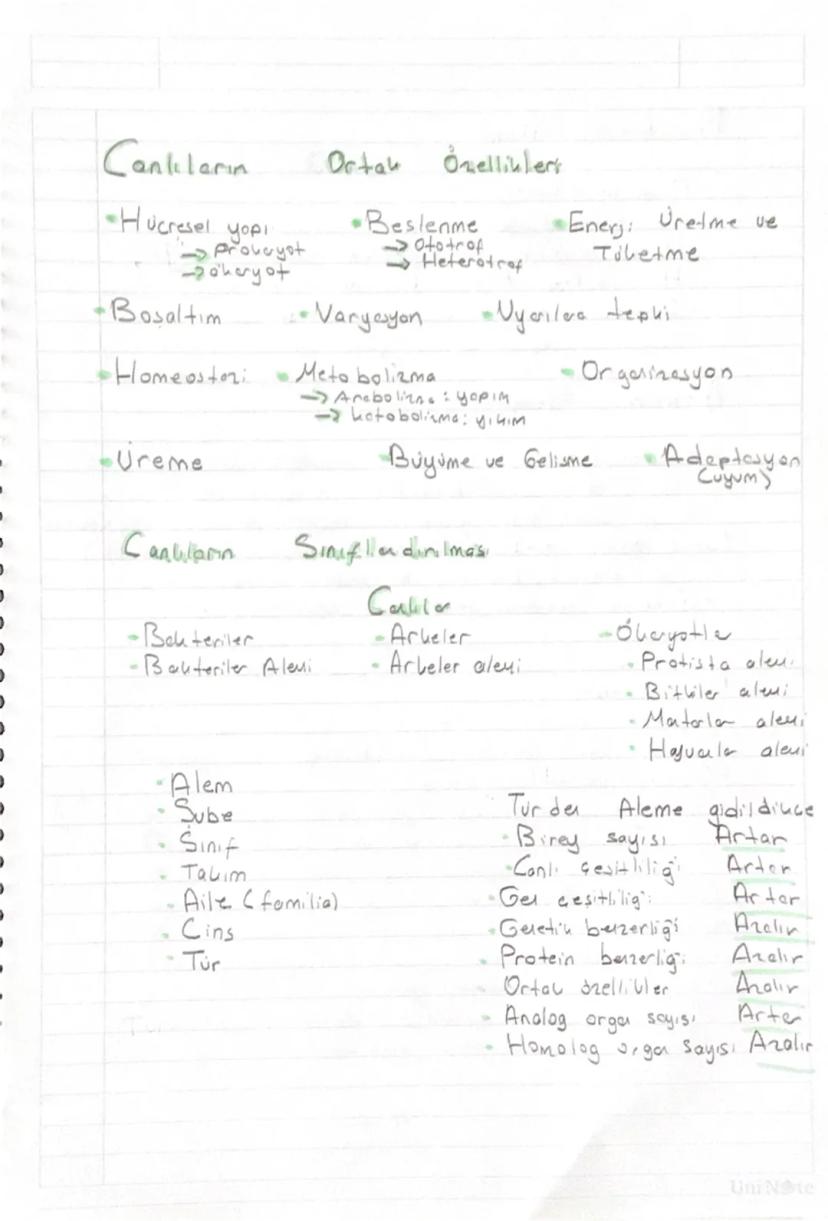 Canlıların Ortak Özellikleri
• Hücresel yapı • Beslenme • Enerji Üretme ve
→ Prokaryot → Ototrof Tüketme
→ ökaryot → Heterotrof
• Boşaltım • Varyasyon • Uyarılara tepki
• Homeostazi • Metabolizma • Organizasyon
→ Anabolizma : yapım
→ katabolizma : yıkım
• Üreme Büyüme ve Gelişme • Adaptasyon
(uyum)
Canlıların Sınıflandırılması
Canlılar
• Bakteriler • Arkeler • Ökaryotlar
• Bakteriler Alemi • Arkeler alemi • Protista alemi
• Bitkiler alemi
• Mantarlar alemi
• Hayvanlar alemi
• Alem
• Şube
• Sınıf
• Takım
• Aile (familia)
• Cins
• Tür
Türden Aleme gidildikçe
• Birey sayısı Artar
• Canlı çeşitliliği Artar
• Gen çeşitliliği Artar
• Genetik benzerliği Azalır
• Protein benzerliği Azalır
• Ortak özellikler Azalır
• Analog organ sayısı Artar
• Homolog organ sayısı Azalır
UniNote